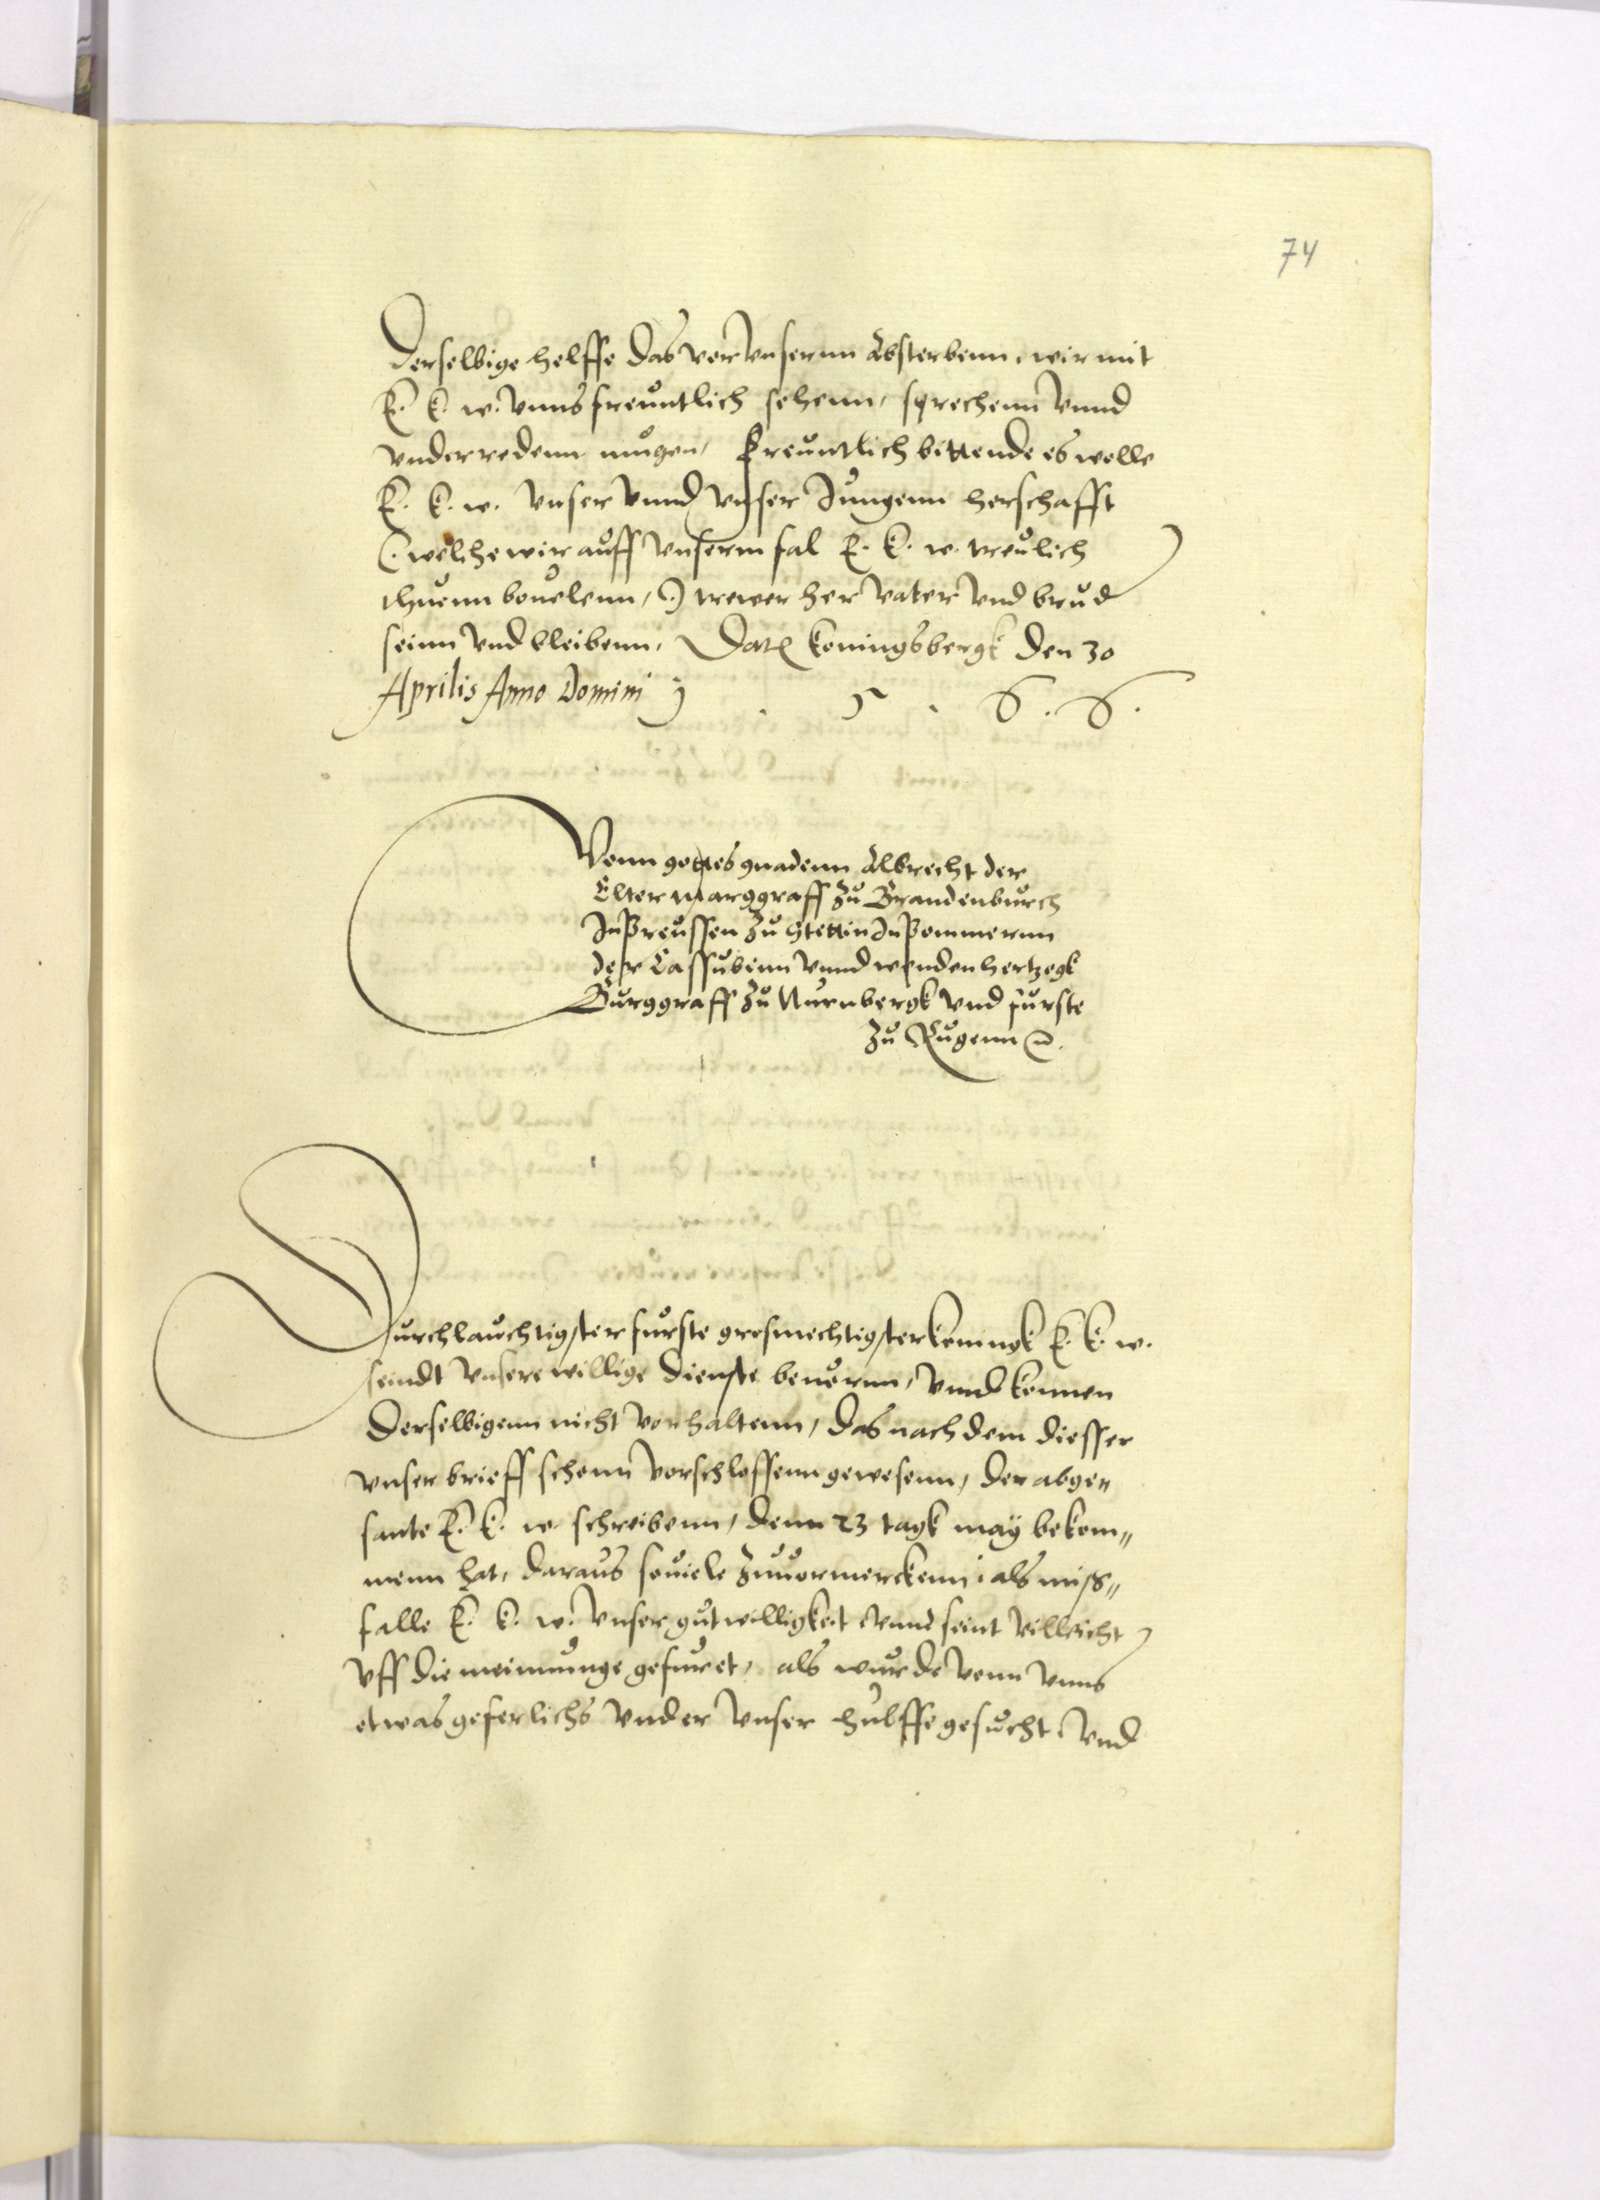 74
derselbige helffe das vor unsernn absterbenn, wir mit
E. k. w. unns freuntlich sehenn, sprechenn unnd
underredenn mugen, Freuntlich bittende es wolle
E. k. w. unser unnd unser Jungenn herschafft
(welche wir auff unserm fal E. k. w. treulich
thuenn bouelenn,) trewer her vater und brud
seinn und bleibenn, Dat Koningsbergk den 30
Aprilis Anno Domini 1 . 5 . 6 . 6 .
Vonn gottes gnadenn Albrecht der
Elter marggraff zu Brandenburch
In Preussen zu Stettin In Pommernn
der Cassubenn unnd wenden hertzogk
Burggraff zu Nurnbergk und furste
zu Rugenn
Durchlauchtigster furste grosmechtigster koningk E. k. w.
seindt unsere willige dienste beuornn, unnd konnen
derselbigenn nicht vorhaltenn, das nach dem diesser
unser brieff schonn vorschlossenn gewesenn, der abge„
sante E. k. w. schreibenn, denn 23 tagk maÿ bekom„
menn hat, daraus souiele zuuormerckenn, als miß„
falle E. k. w. unser gutwilligkeit unnd seint villeicht
uff die meinunge gefuret, als wurde vonn unns
etwas geferlichs under unser hulffe gesucht, und